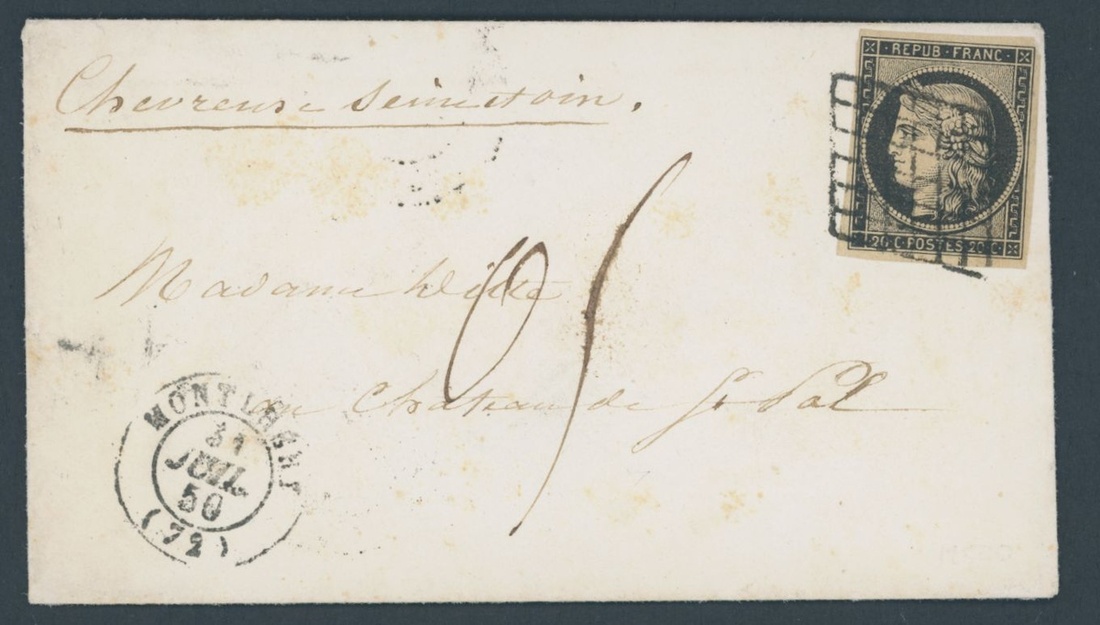 Chevreuse Seine et oin.
REPUB · FRANC ·
20 C · POSTES 20 C ·
Madame
05
au Château de St Pol
MONTLHERY
31
JUIL
50
(72)